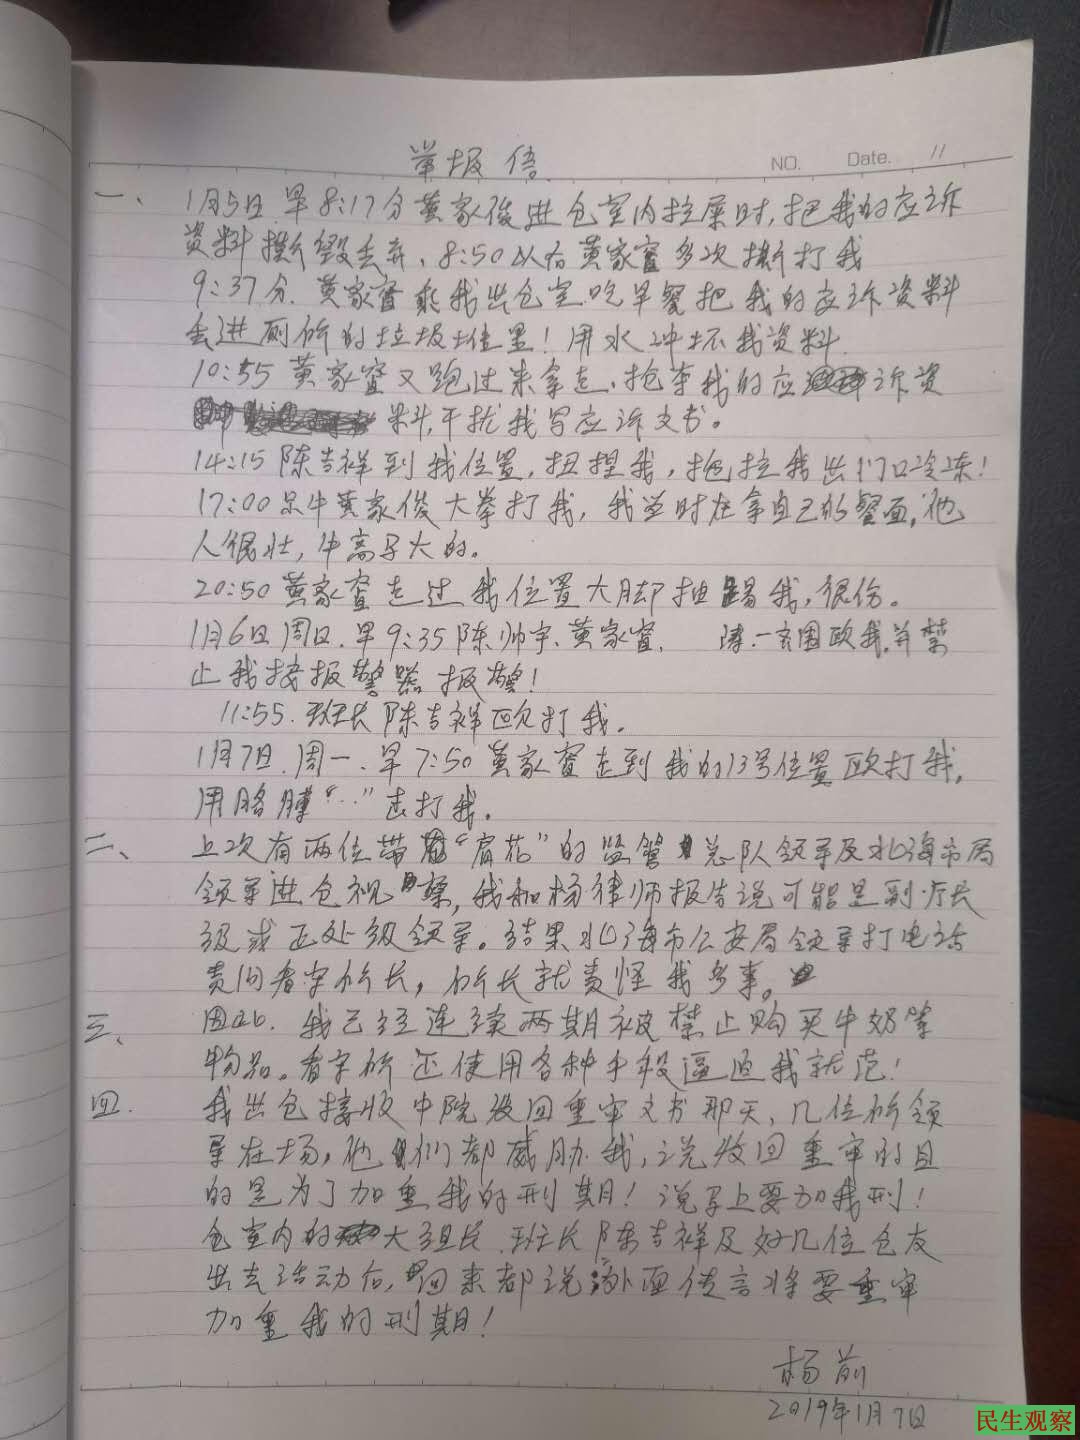 举报信
NO. Date. 11
一、1月5日早8:17分黄家俊进仓室内拉屎时,把我的应诉
资料撕毁丢弃、8:50以后黄家富多次撕打我
9:37分.黄家富乘我出仓室吃早餐把我的应诉资料
丢进厕所的垃圾堆里!用水冲坏我资料.
10:55黄家富又跑过来拿走、抢夺我的应诉资
料,干扰我写应诉文书。
14:15陈吉祥到我位置,扭捏我,拖拉我出门口冷冻!
17:00 黄家俊大拳打我,我当时在拿自己的餐面,他
人很壮,牛高马大的。
20:50黄家富走过我位置大脚 踢我,很伤。
1月6日周日.早9:35陈帅宇、黄家富、 陈一 围殴我,并禁
止我按报警器报警!
11:55.班长陈吉祥殴打我。
1月7日.周一.早7:50黄家富走到我的13号位置殴打我,
用胳膊“..”击打我。
二、上次有两位带“肩花”的监管总队领导及北海市局
领导进仓视察,我和杨律师报告说可能是副厅长
级或正处级领导。结果北海市公安局领导打电话
责问看守所长,所长就责怪我多事。
三、因此.我已经连续两期被禁止购买牛奶等
物品。看守所还使用各种手段逼迫我就范!
四.我出仓接收中院发回重审文书那天,几位所领
导在场,他们都威胁我,说发回重审的目
的是为了加重我的刑期!说马上要加我刑!
仓室内的大组长.班长陈吉祥及好几位仓友
出去活动后,回来都说外面传言将要重审
加重我的刑期!
杨前
2019年1月7日
民生观察